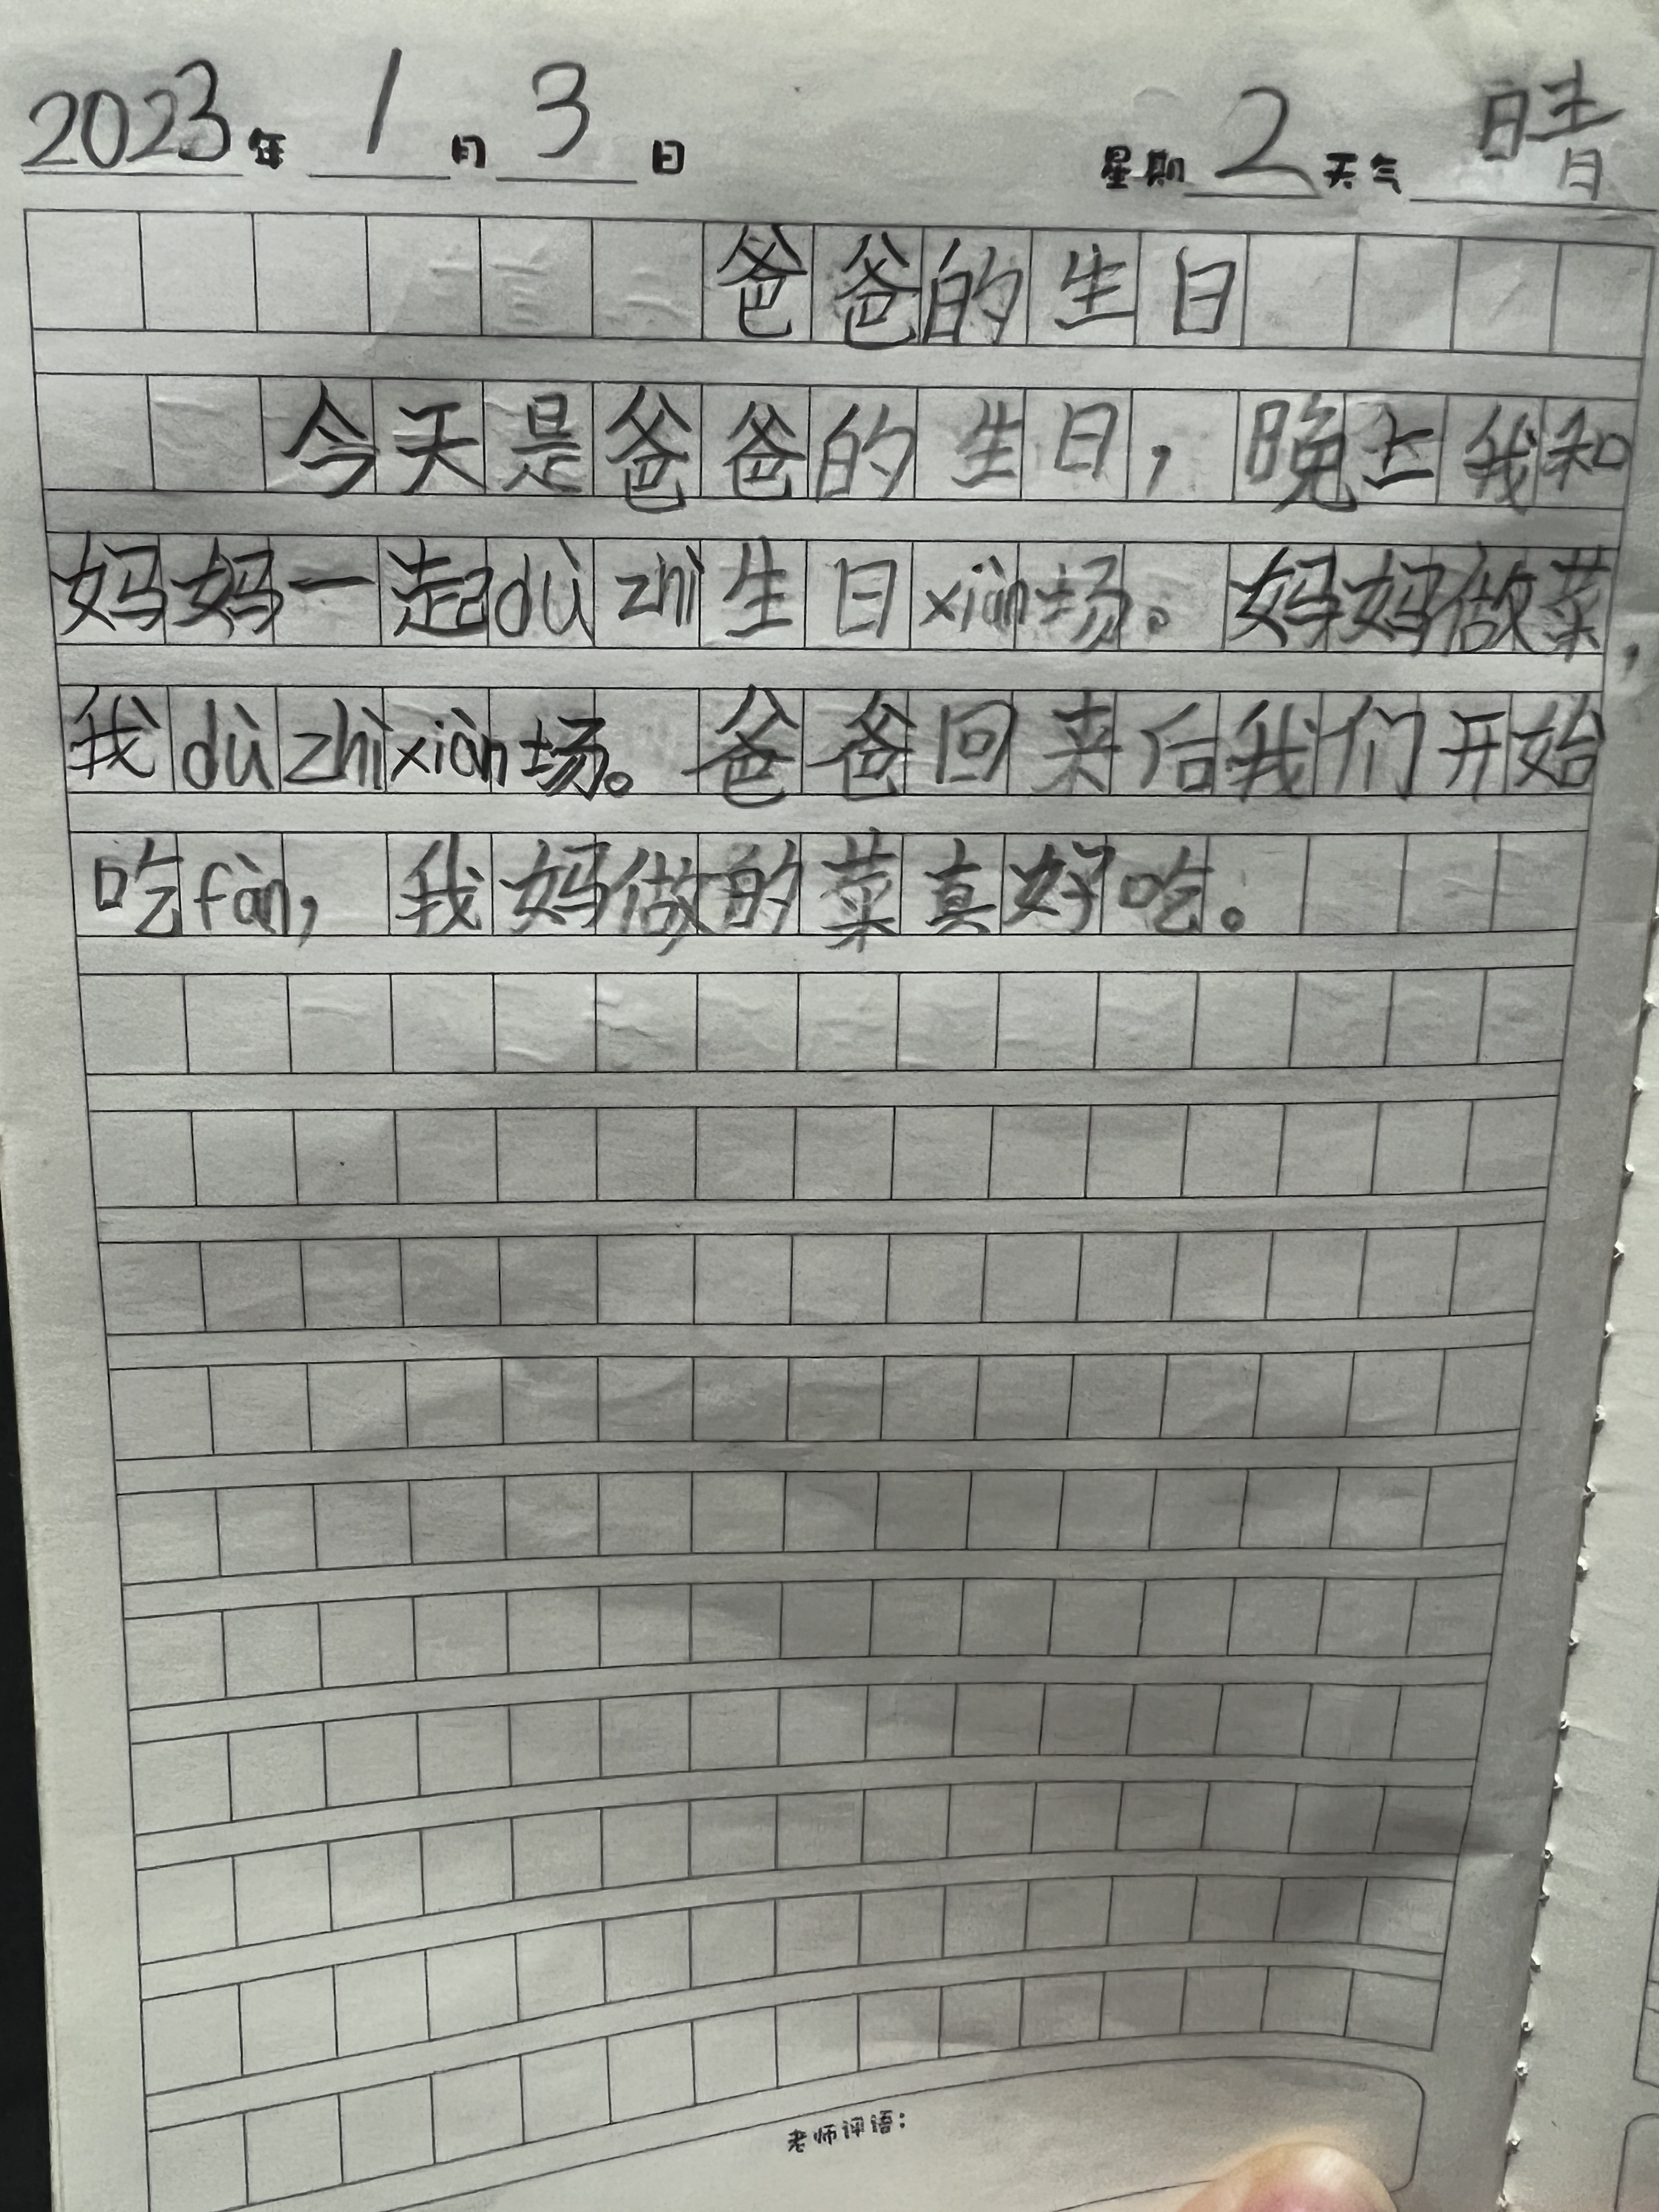 2023年 1月 3日 星期 2 天气 晴
爸爸的生日
今天是爸爸的生日，晚上我和
妈妈一起dù zhì生日xiàn场。妈妈做菜，
我dù zhì xiàn场。爸爸回来后我们开始
吃fàn，我妈做的菜真好吃。
老师评语：